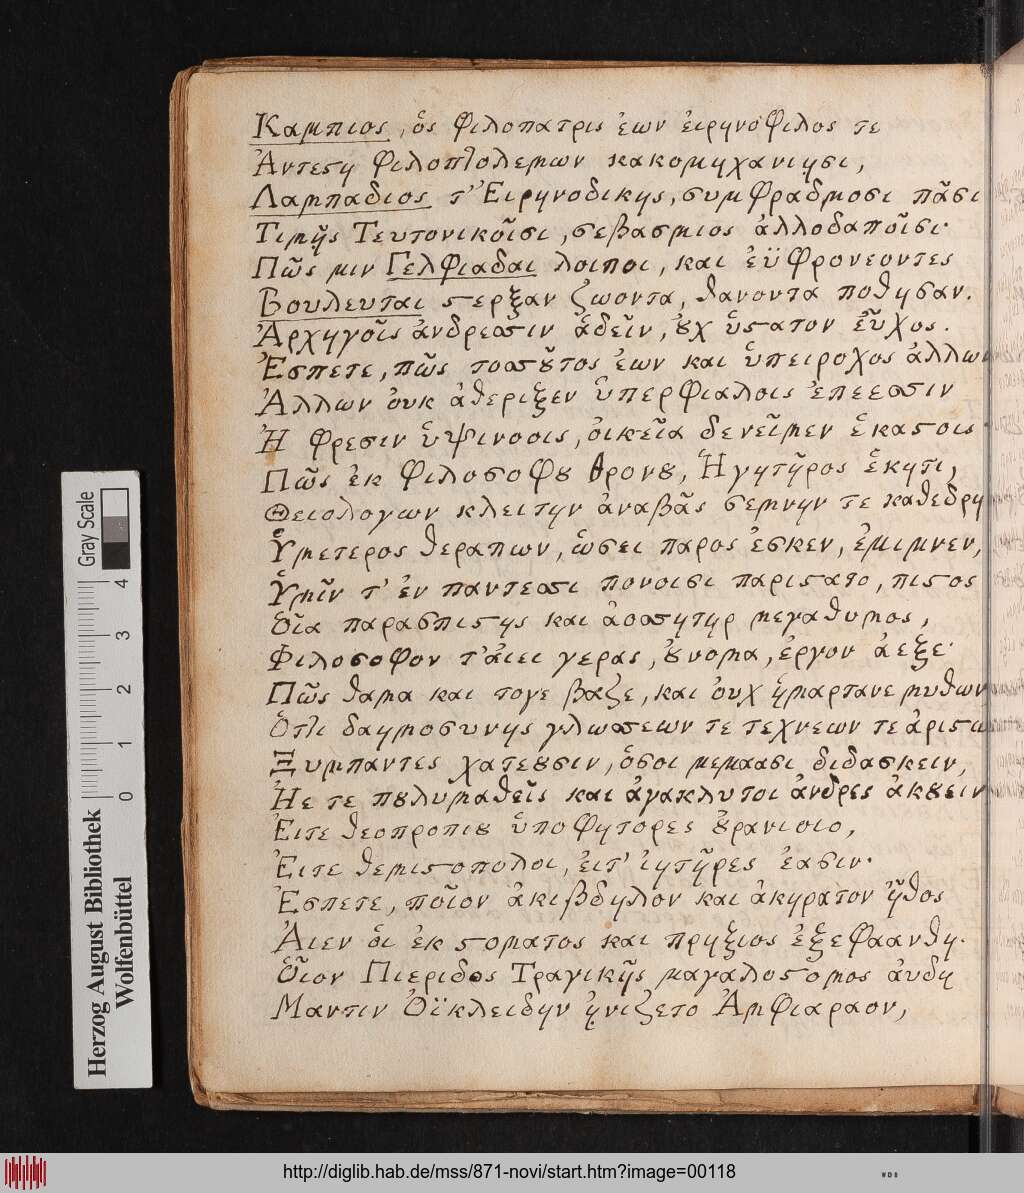 Καμπιος, ὁς Φιλοπατρις ἐων ἐιρηνόΦιλος τε
Ἀντεση Φιλοπτολεμων κακομηχανιησι,
Λαμπαδιος τ' Ἐιρηνοδικης, συμΦραδμοσι πᾶσι
Τιμῇς Τευτονικοῖσι, σεβασμιος ἀλλοδαποῖσι·
Πῶς μιν Γελφιαδαι λοιποι, και ἐϋΦρονεοντες
Βουλευται στερξαν ζωοντα, θανοντα ποθησαν.
Ἀρχηγοῖς ἀνδρεσσιν ἁδεῖν, ȣχ ὑστατον εὖχος.
Ἐσπετε, πῶς τοσσȣ͂τος ἐων και ὑπειροχος ἀλλων
Ἀλλων ὀυκ ἀθεριξεν ὑπερΦιαλοις ἐπεεσσιν
Ἠ φρεσιν ὑψινοοις, ὀικεῖα δενεῖμεν ἑκαστοις·
Πῶς ἐκ ΦιλοσοΦȣ θρονȣ, Ἡγητῆρος ἑκητι,
Θειολογων κλειτην ἀναβᾶς σεμνην τε καθεδρη
Ὑμετερος θεραπων, ὡσει παρος ἐσκεν, ἐμιμνεν,
Ὑμῖν τ' ἐν παντεσσι πονοισι παριστατο, πιστος
Ὁῖα παρασπιστης και ἀοσσητηρ μεγαθυμος,
ΦιλοσοΦον τ' ἀιει γερας, ȣ̓νομα, ἐργον ἀεξε·
Πῶς θαμα και τογε βαζε, και ὀυχ ἡμαρτανε μυθων
Ὁττι δαημοσυνης γλωσσεων τε τεχνεων τε ἀριστω
Ξυμπαντες χατεȣσιν, ὁσοι μεμαασι διδασκειν,
Ἠε τε πȣλυμαθεῖς και ἀγακλυτοι ἀνδρες ἀκȣειν
Ἐιτε θεοπροπιȣ ὑποΦητορες ȣ̓ρανιοιο,
Ἐιτε θεμιστοπολοι, ἐιτ' ἰητῆρες ἐασιν·
Ἐσπετε, ποῖον ἀκιβδηλον και ἀκηρατον ἦθος
Ἀιεν ὁι ἐκ στοματος και πρηξιος ἐξεΦαανθη·
Ὁῖον Πιεριδος Τραγικῆς μαγαλοστομος ἀυδη
Μαντιν Ὀϊκλειδην ἠνιζετο ἈμΦιαραον,
Gray Scale
4
3
2
1
0
Herzog August Bibliothek
Wolfenbüttel
http://diglib.hab.de/mss/871-novi/start.htm?image=00118
WDB